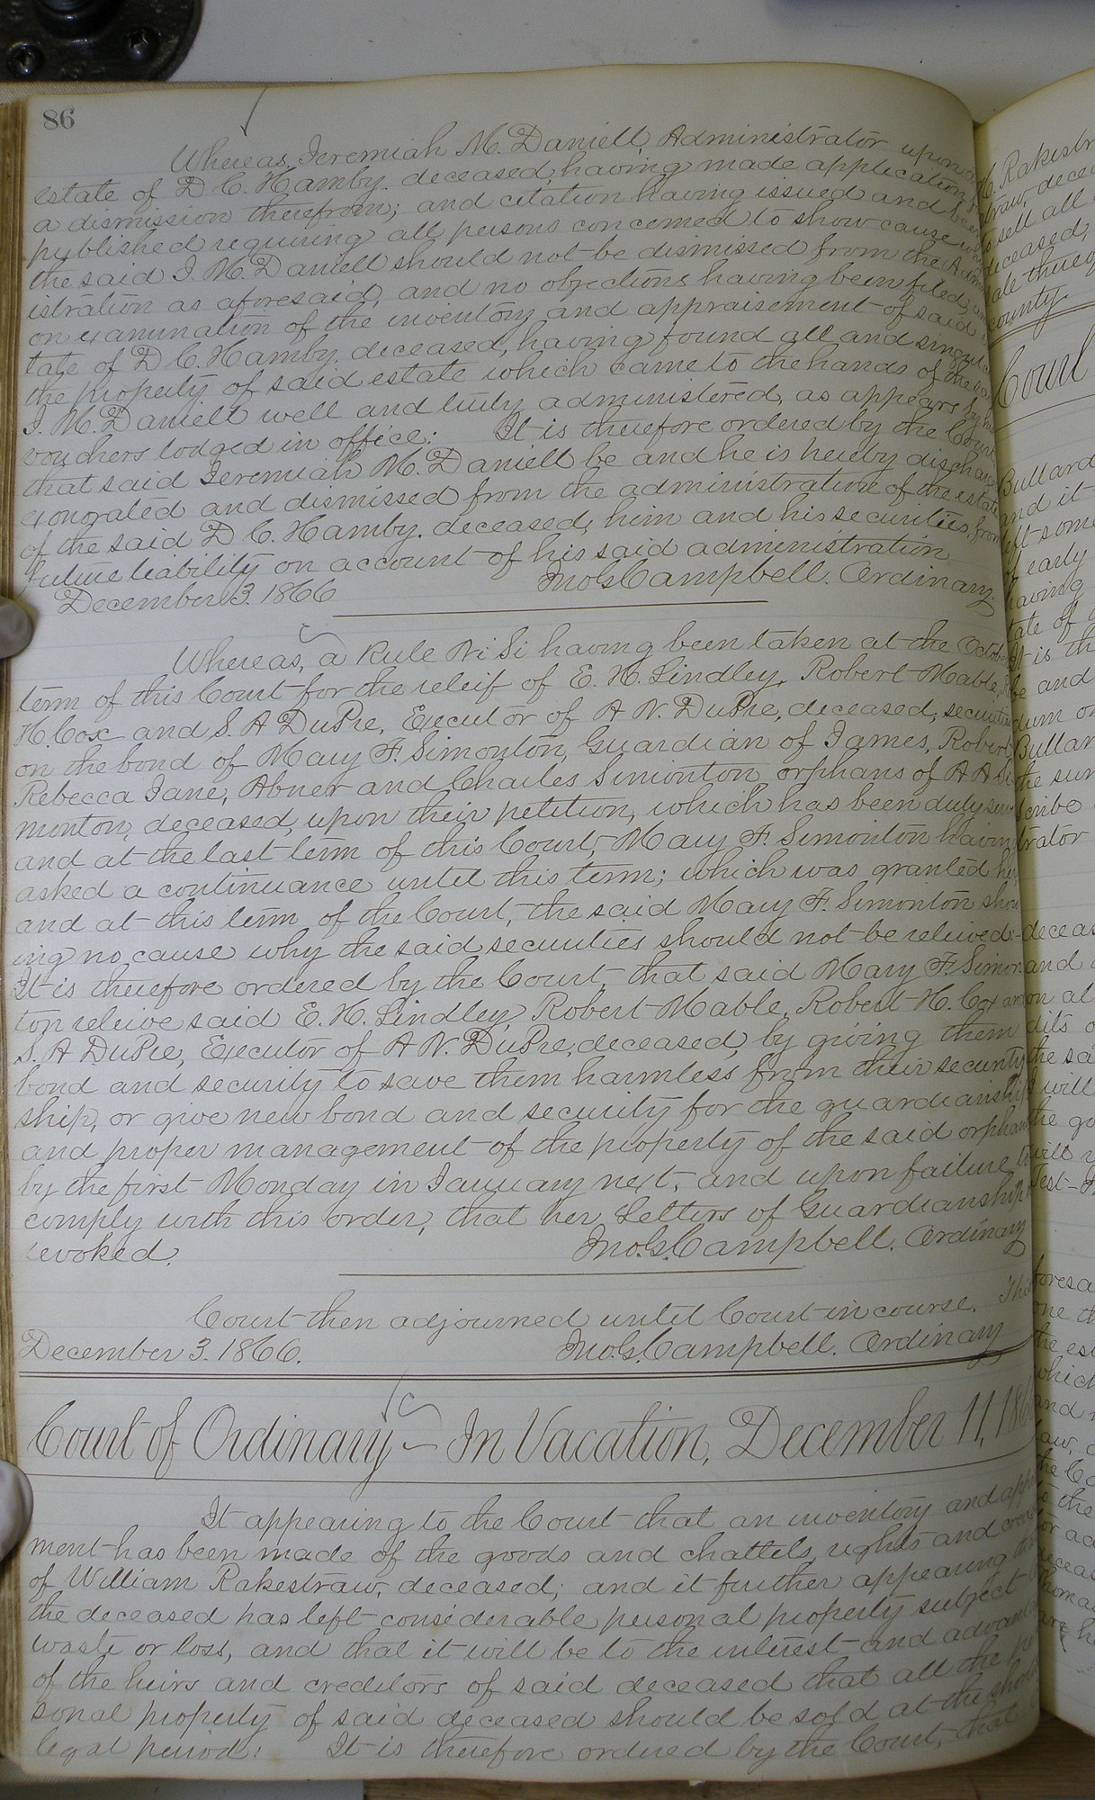 86
Whereas, Jeremiah M. Daniell, Administrator upon
estate of D C. Hamby. deceased, having made application
a dismission therefrom; and citation having issued and
published requiring all persons concerned to show cause
the said J. M. Daniell should not be dismissed from the
istration as aforesaid, and no objections having been filed,
on examination of the inventory and appraisement of said
tate of D C. Hamby. deceased, having found all and
the property of said estate which came to the hands of the
J. M. Daniell well and truly administered, as appears by
vouchers lodged in office: It is therefore ordered by the Court
that said Jeremiah M. Daniell be and he is hereby
exonorated and dismissed from the administration of the estate
of the said D C. Hamby. deceased, him and his securities, from
future liability on account of his said administration
December 3. 1866 Jno. G. Campbell. Ordinary.
Whereas, a Rule Ni Si having been taken at the
term of this Court for the releif of E. H. Lindley, Robert Mable,
H. Cox and S. A DuPre, Executor of A N. DuPre, deceased,
on the bond of Mary F. Simonton, Guardian of James, Robert,
Rebecca Jane, Abner and Charles Simonton orphans of A A Si
monton, deceased, upon their petition, which has been duly
and at the last term of this Court, Mary F. Simonton having
asked a continuance until this term; which was granted her
and at this term of the Court, the said Mary F. Simonton show
ing no cause why the said securities should not be releived:
It is therefore ordered by the Court, that said Mary F. Simon
ton releive said E. H. Lindley, Robert Mable, Robert H. Cox and
S. A DuPre, Executor of A N. DuPre, deceased, by giving them
bond and security to save them harmless from their security
ship, or give new bond and security for the guardianship
and proper management of the property of the said orphans
by the first Monday in January next, and upon failure to
comply with this order, that her Letters of Guardianship
revoked. Jno. G. Campbell. Ordinary
Court then adjourned until Court in course. This
December 3. 1866. Jno. G. Campbell. Ordinary
Court of Ordinary – In Vacation, December 11, 186
It appearing to the Court that an inventory and
ment has been made of the goods and chattels, rights and
of William Rakestraw, deceased; and it further appearing
the deceased has left considerable personal property subject
waste or loss, and that it will be to the interest and
of the heirs and creditors of said deceased that all the
sonal property of said deceased should be sold at the
legal period: It is therefore ordered by the Court, that